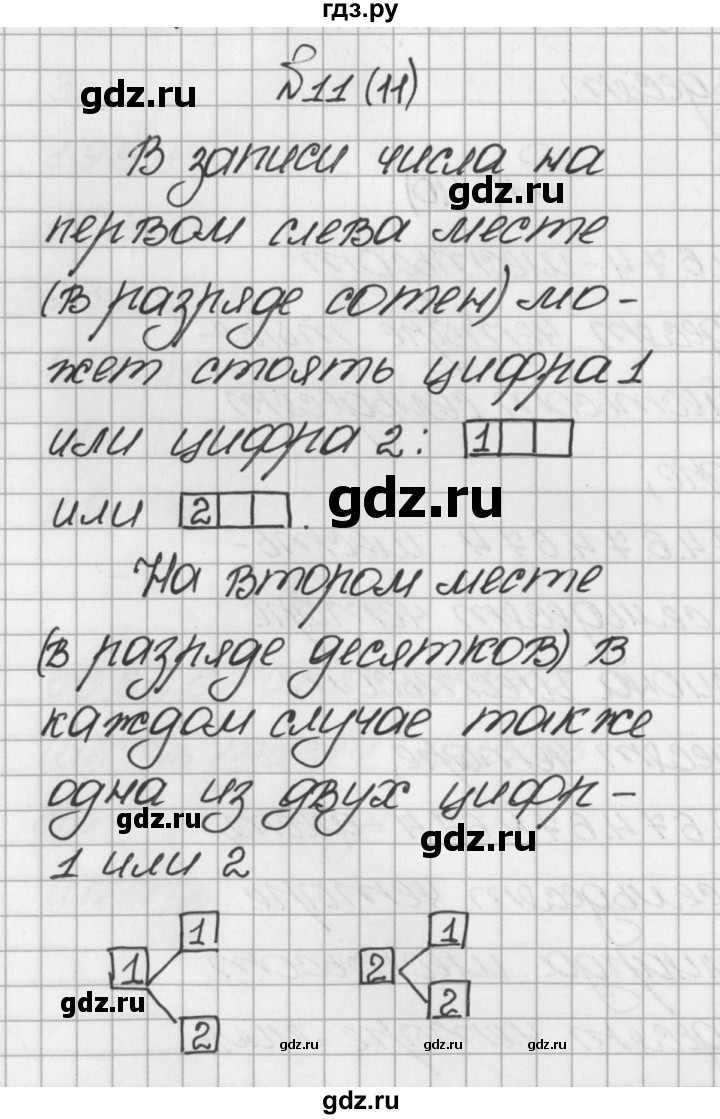 гдз.ру
gdz.ru
№11 (11)
В записи числа на
gdz.ru
первом слева месте
(в разряде сотен) мо-
жет стоять цифра 1
или цифра 2: 1
или 2 .
gdz.ru
На втором месте
(в разряде десятков) в
каждом случае также
одна из двух цифр -
gdz.ru
gdz.ru
1 или 2
1 1
1 2 2
gdz.ru
2 gdz.ru gdz.ru gdz.ru
gdz.ru